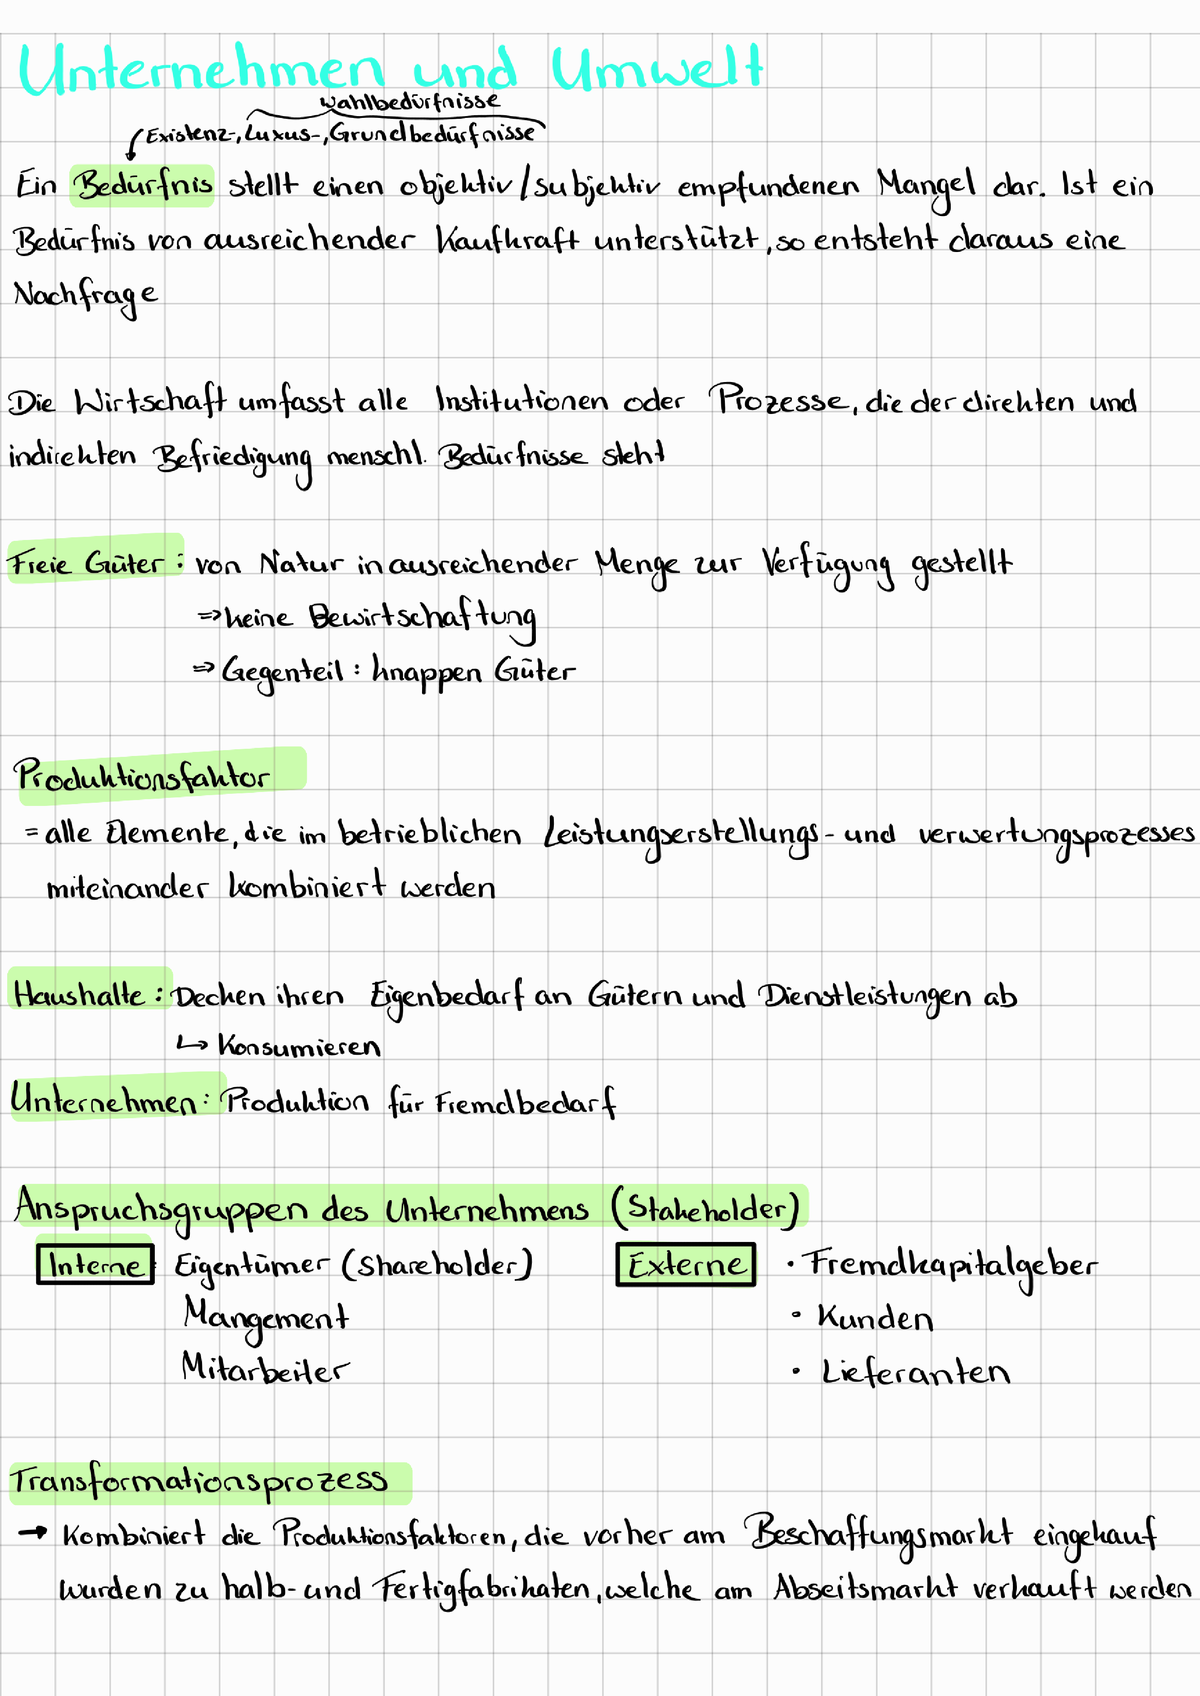 Unternehmen und Umwelt
Wahlbedürfnisse
Existenz-, Luxus-, Grundbedürfnisse
Ein Bedürfnis stellt einen objektiv/subjektiv empfundenen Mangel dar. Ist ein
Bedürfnis von ausreichender Kaufkraft unterstützt, so entsteht daraus eine
Nachfrage
Die Wirtschaft umfasst alle Institutionen oder Prozesse, die der direkten und
indirekten Befriedigung menschl. Bedürfnisse steht
Freie Güter: von Natur in ausreichender Menge zur Verfügung gestellt
⇒ keine Bewirtschaftung
⇒ Gegenteil: knappen Güter
Produktionsfaktor
= alle Elemente, die im betrieblichen Leistungserstellungs- und verwertungsprozesses
miteinander kombiniert werden
Haushalte: Decken ihren Eigenbedarf an Gütern und Dienstleistungen ab
↳ Konsumieren
Unternehmen: Produktion für Fremdbedarf
Anspruchsgruppen des Unternehmens (Stakeholder)
Interne Eigentümer (Shareholder) Externe • Fremdkapitalgeber
Mangement • Kunden
Mitarbeiter • Lieferanten
Transformationsprozess
→ Kombiniert die Produktionsfaktoren, die vorher am Beschaffungsmarkt eingekauf
wurden zu halb- und Fertigfabrikaten, welche am Abseitsmarkt verkauft werden